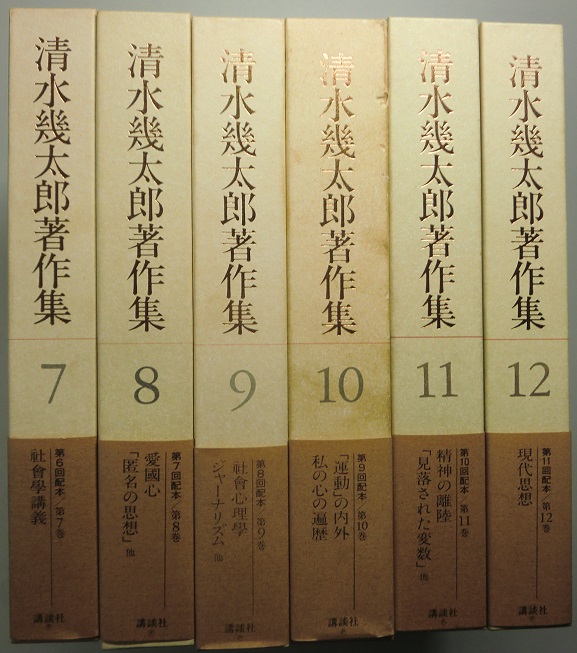 清水幾太郎著作集
7
第6回配本/第7巻
社會學講義
講談社
清水幾太郎著作集
8
第7回配本/第8巻
愛國心
「匿名の思想」他
講談社
清水幾太郎著作集
9
第8回配本/第9巻
社會心理學
ジャーナリズム 他
講談社
清水幾太郎著作集
10
第9回配本/第10巻
「運動」の内外
私の心の遍歴
講談社
清水幾太郎著作集
11
第10回配本/第11巻
精神の離陸
「見落された変数」他
講談社
清水幾太郎著作集
12
第11回配本/第12巻
現代思想
講談社